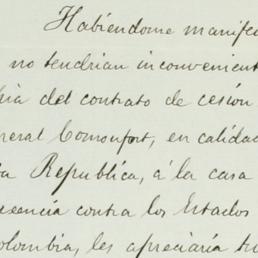 Habiéndome manifes
no tendrian inconvenient
del contrato de cesión
neral Comonfort, en calidad
ta Republica, á la casa
esencia contra los Estados
olombia, les apreciaría